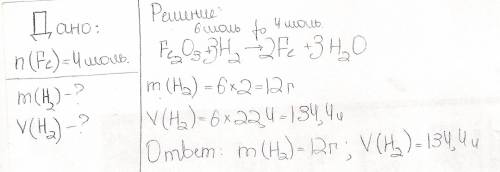 Дано:
n(Fe)=4моль.
m(H₂)-?
V(H₂)-?
Решение:
6моль 4моль.
Fe₂O₃+3H₂→2Fe+3H₂O
m(H₂)=6×2=12г
V(H₂)=6×22,4=134,4л
Ответ: m(H₂)=12г; V(H₂)=134,4л